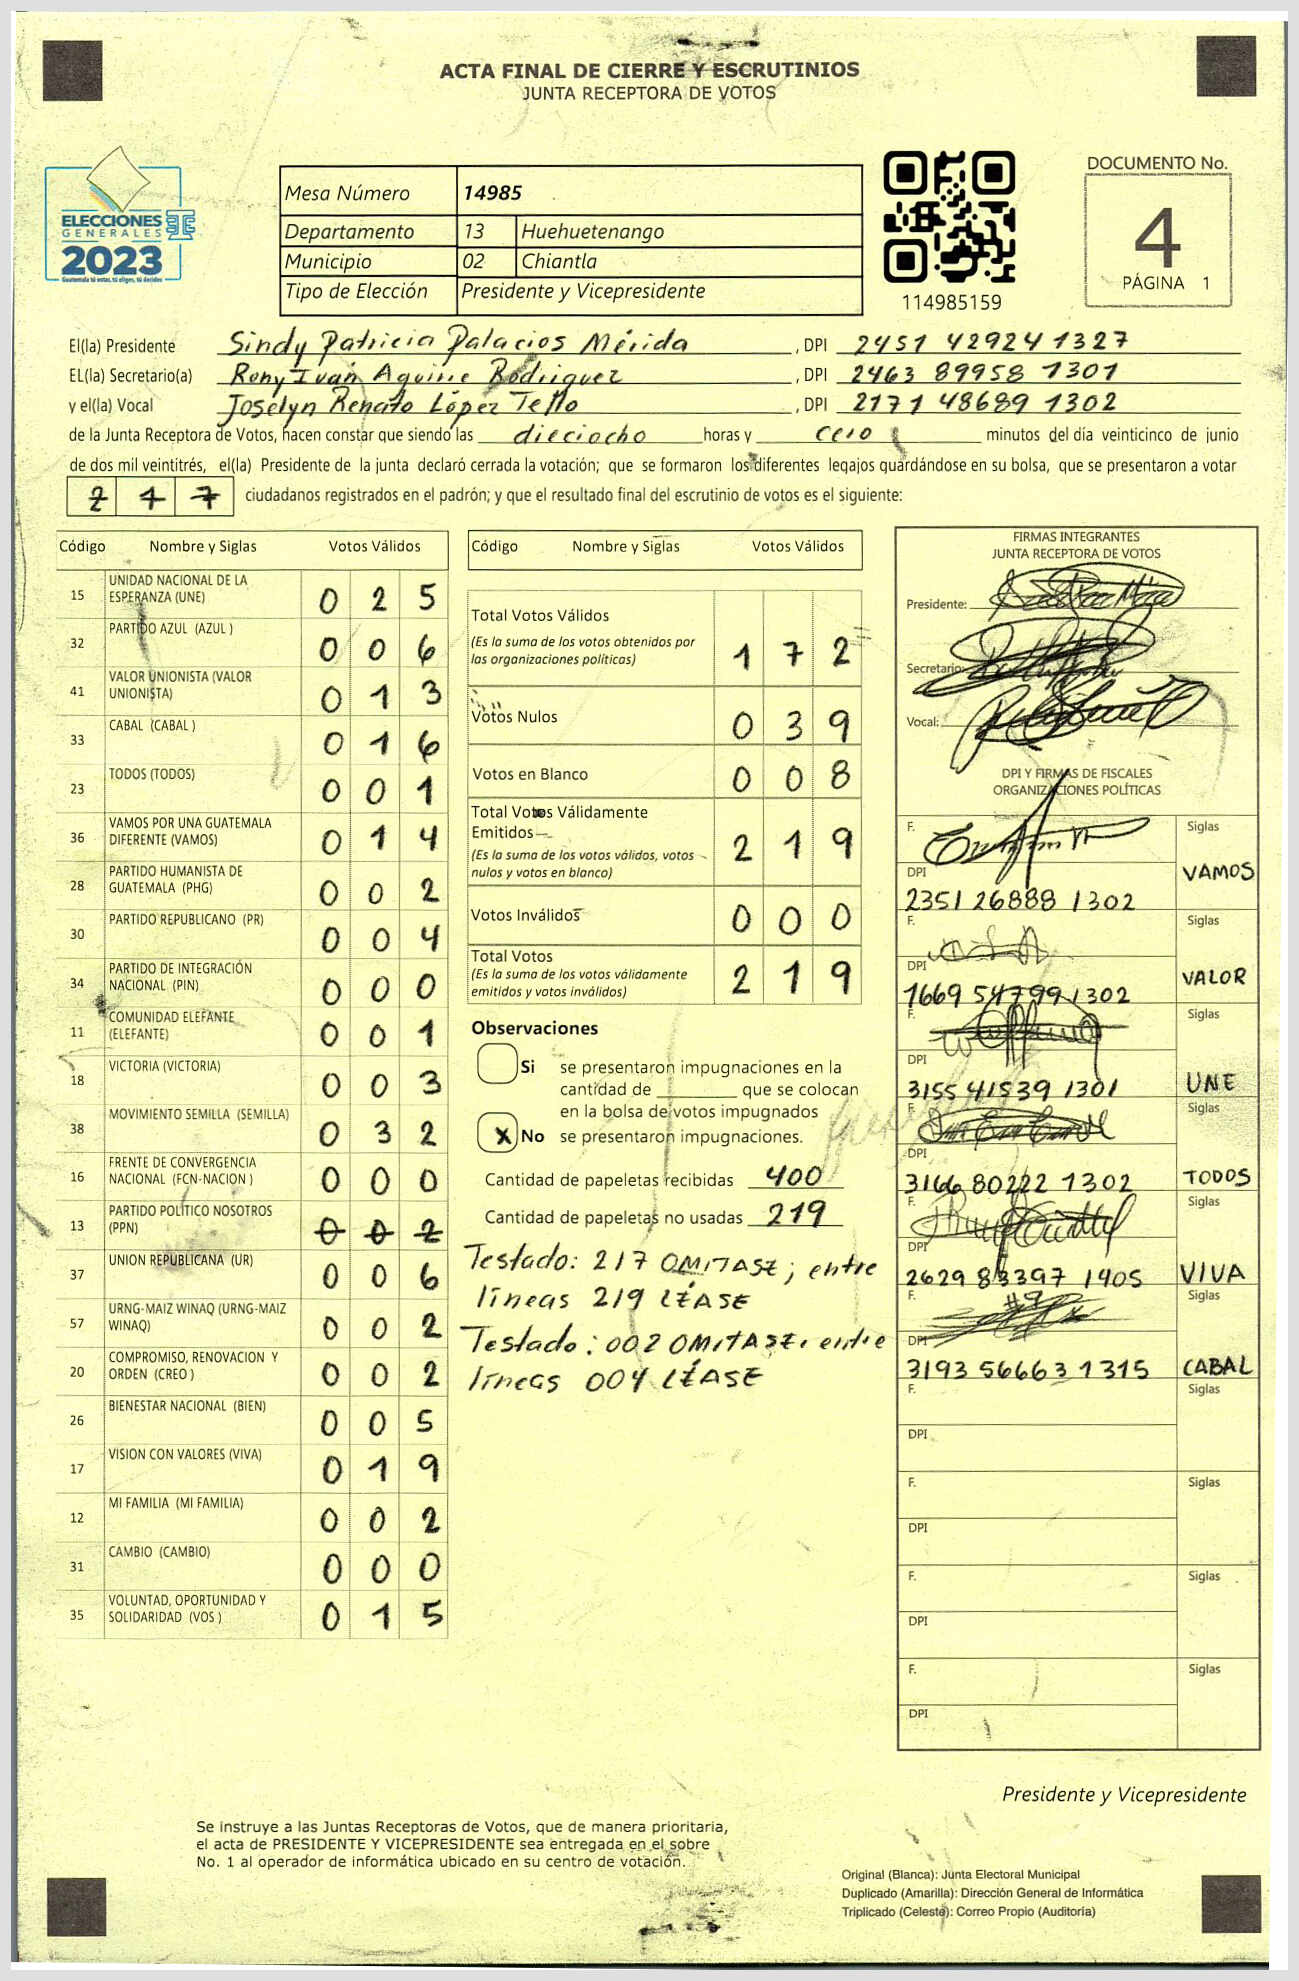 ACTA FINAL DE CIERRE Y ESCRUTINIOS
JUNTA RECEPTORA DE VOTOS
ELECCIONES
GENERALES
2023
Guatemala tú votas, tú eliges, tú decides
Mesa Número 14985
Departamento 13 Huehuetenango
Municipio 02 Chiantla
Tipo de Elección Presidente y Vicepresidente
114985159
DOCUMENTO No.
4
PÁGINA 1
El(la) Presidente Sindy Patricia Palacios Mérida , DPI 2451 42924 1327
EL(la) Secretario(a) Rony Iván Aguirre Rodriguez , DPI 2463 89958 1301
y el(la) Vocal Joselyn Renato López Tello , DPI 2171 48689 1302
de la Junta Receptora de Votos, hacen constar que siendo las dieciocho horas y cero minutos del día veinticinco de junio
de dos mil veintitrés, el(la) Presidente de la junta declaró cerrada la votación; que se formaron los diferentes legajos guardándose en su bolsa, que se presentaron a votar
2 4 7 ciudadanos registrados en el padrón; y que el resultado final del escrutinio de votos es el siguiente:
Código Nombre y Siglas Votos Válidos
15 UNIDAD NACIONAL DE LA ESPERANZA (UNE) 0 2 5
32 PARTIDO AZUL (AZUL ) 0 0 6
41 VALOR UNIONISTA (VALOR UNIONISTA) 0 1 3
33 CABAL (CABAL ) 0 1 6
23 TODOS (TODOS) 0 0 1
36 VAMOS POR UNA GUATEMALA DIFERENTE (VAMOS) 0 1 4
28 PARTIDO HUMANISTA DE GUATEMALA (PHG) 0 0 2
30 PARTIDO REPUBLICANO (PR) 0 0 4
34 PARTIDO DE INTEGRACIÓN NACIONAL (PIN) 0 0 0
11 COMUNIDAD ELEFANTE (ELEFANTE) 0 0 1
18 VICTORIA (VICTORIA) 0 0 3
38 MOVIMIENTO SEMILLA (SEMILLA) 0 3 2
16 FRENTE DE CONVERGENCIA NACIONAL (FCN-NACION ) 0 0 0
13 PARTIDO POLITICO NOSOTROS (PPN) 0 0 2
37 UNION REPUBLICANA (UR) 0 0 6
57 URNG-MAIZ WINAQ (URNG-MAIZ WINAQ) 0 0 2
20 COMPROMISO, RENOVACION Y ORDEN (CREO ) 0 0 2
26 BIENESTAR NACIONAL (BIEN) 0 0 5
17 VISION CON VALORES (VIVA) 0 1 9
12 MI FAMILIA (MI FAMILIA) 0 0 2
31 CAMBIO (CAMBIO) 0 0 0
35 VOLUNTAD, OPORTUNIDAD Y SOLIDARIDAD (VOS ) 0 1 5
Código Nombre y Siglas Votos Válidos
Total Votos Válidos
(Es la suma de los votos obtenidos por
las organizaciones políticas) 1 7 2
Votos Nulos 0 3 9
Votos en Blanco 0 0 8
Total Votos Válidamente
Emitidos
(Es la suma de los votos válidos, votos
nulos y votos en blanco) 2 1 9
Votos Inválidos 0 0 0
Total Votos
(Es la suma de los votos válidamente
emitidos y votos inválidos) 2 1 9
Observaciones
Si se presentaron impugnaciones en la
cantidad de ________ que se colocan
en la bolsa de votos impugnados
X No se presentaron impugnaciones.
Cantidad de papeletas recibidas 400
Cantidad de papeletas no usadas 219
Testado: 217 OMITASE; entre
líneas 219 LÉASE
Testado: 002 OMITASE; entre
líneas 004 LÉASE
FIRMAS INTEGRANTES
JUNTA RECEPTORA DE VOTOS
Presidente:
Secretario:
Vocal:
DPI Y FIRMAS DE FISCALES
ORGANIZACIONES POLÍTICAS
F. Siglas
DPI VAMOS
2351 26888 1302
F. Siglas
DPI VALOR
1669 54799 1302
F. Siglas
DPI UNE
3155 41539 1301
F. Siglas
DPI TODOS
3166 80222 1302
F. Siglas
DPI VIVA
2629 83397 1405
F. Siglas
DPI CABAL
3193 56663 1315
F. Siglas
DPI
F. Siglas
DPI
F. Siglas
DPI
F. Siglas
DPI
Presidente y Vicepresidente
Se instruye a las Juntas Receptoras de Votos, que de manera prioritaria,
el acta de PRESIDENTE Y VICEPRESIDENTE sea entregada en el sobre
No. 1 al operador de informática ubicado en su centro de votación.
Original (Blanca): Junta Electoral Municipal
Duplicado (Amarilla): Dirección General de Informática
Triplicado (Celeste): Correo Propio (Auditoría)